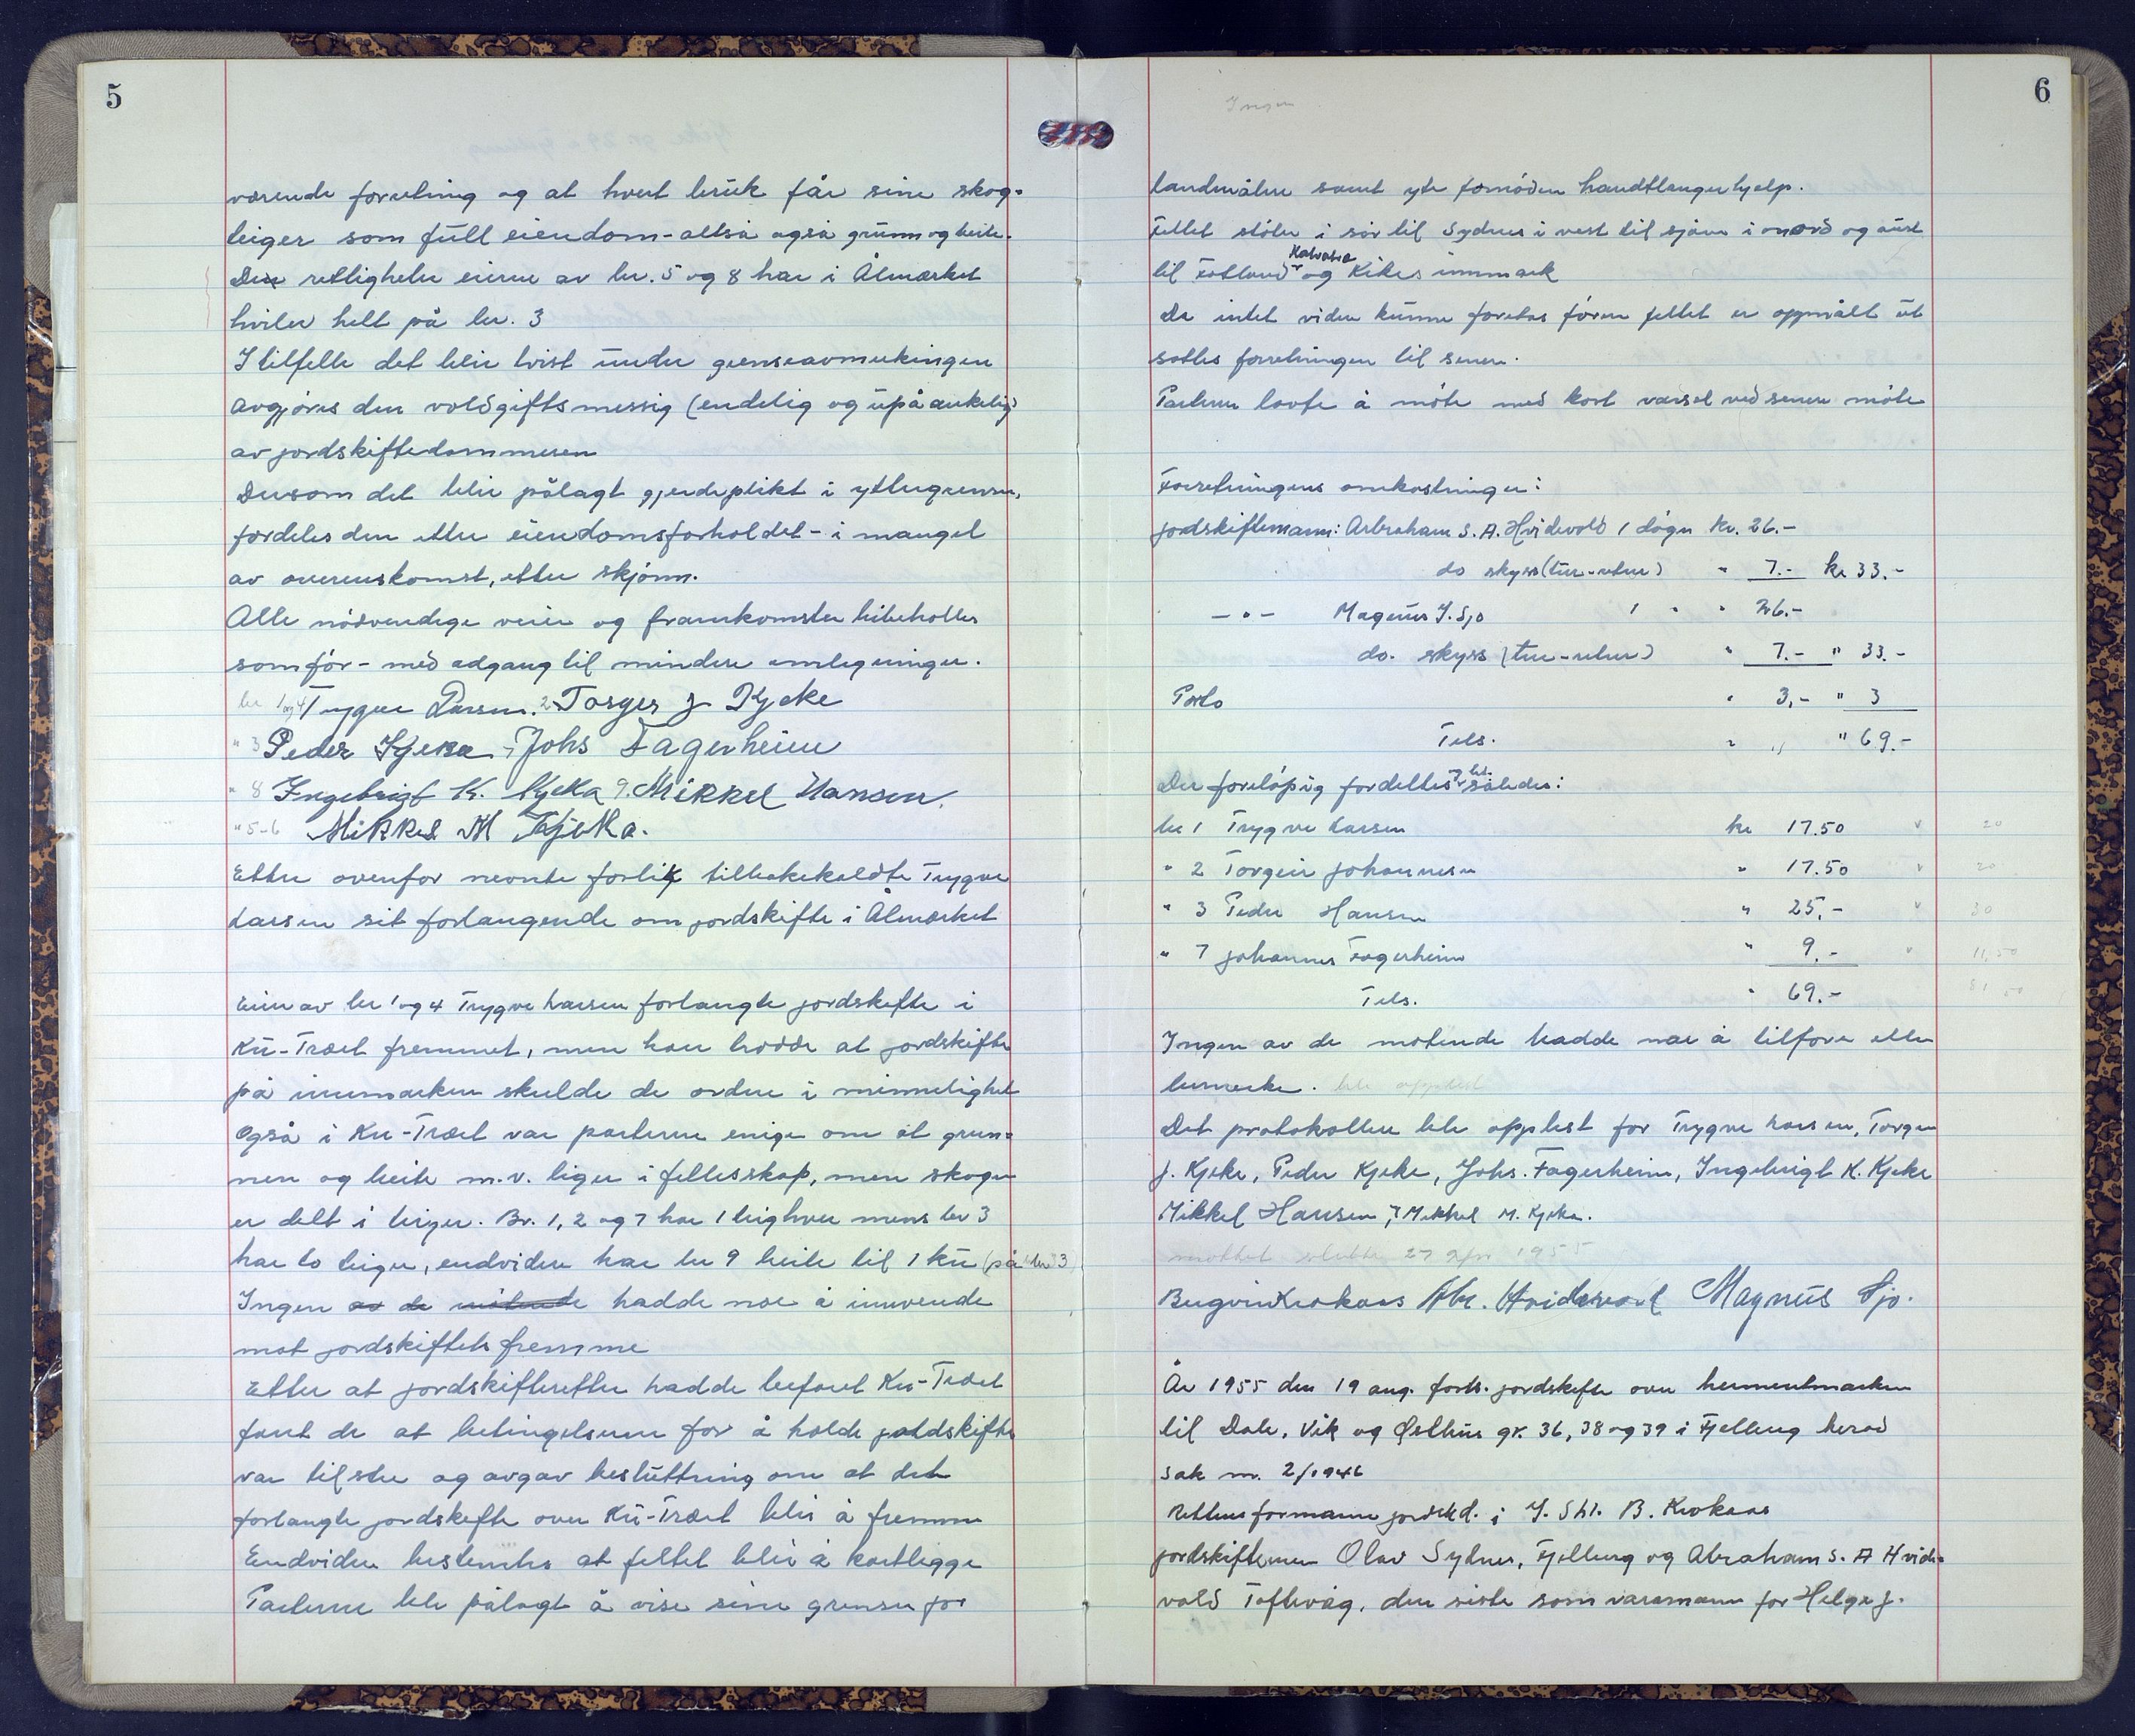 5
værende forretning og at hvert bruk får sine skog-
teiger som full eiendom - altså også grunn og beite.
Den rettigheter eierne av br. 5 og 8 har i Ålmarket
hviler helt på br. 3
I tilfelle det blir tvist under grenseavmerkingen
avgjøres den voldgiftsmessig (endelig og upåankelig)
av jordskiftedommeren
Dersom det blir pålagt gjerdeplikt i yttergrensen,
fordeles den etter eiendomsforholdet - i mangel
av overenskomst, etter skjønn.
Alle nødvendige veier og framkomster bibeholdes
som før - med adgang til mindre omlegninger.
br 1 og 4 Trygve Larsen. 2 Torger J Kjeke
" 3 Peder Kjeka 7 Johs Fagerheim
" 8 Ingebrigt K. Kjeka 9. Mikkel Hansen.
" 5-6 Mikkel M Kjeka.
Etter ovenfor nevnte forlik tilbakekaldte Trygve
Larsen sit forlangende om jordskifte i Ålmarket
Eier av br 1 og 4 Trygve Larsen forlangte jordskifte i
Ku-Træet fremmet, men han trodde at jordskifte
på innmarken skulde de ordne i minnelighet
Også i Ku-Træet var partene enige om at grun-
nen og beite m.v. ligger i fellesskap, men skogen
er delt i teiger. Br. 1, 2 og 7 har 1 teig hver mens br 3
har to teiger, endvidere har br 9 beite til 1 ku (på br 3
Ingen av de møtende hadde noe å innvende
mot jordskiftets fremme
Etter at jordskifteretten hadde befaret Ku-Træet
fant de at betingelsene for å holde jordskifte
var tilstede og avgav beslutning om at det
forlangte jordskifte over Ku-Træet blir å fremme
Endvidere bestemtes at feltet blir å kartlegge
Partene ble pålagt å vise sine grenser for
6
Ingen
landmåleren samt yte fornøden handtlangerhjelp.
Feltet støter i sør til Sydnes i vest til sjøen i nord og aust
til Fatland og Kikes innmark
Da intet videre kunne foretas føren feltet er oppmålt ut
sattes forretningen til senere.
Partene lovte å møte med kort varsel ved senere møte
Forretningens omkostninger:
jordskiftemann: Arbraham S. A. Hvidevold 1 døgn kr. 26.-
do skyss (tur-retur) " 7.- kr 33.-
- " - Magnus J. Sjo 1 " " 26.-
do. skyss (tur-retur) " 7.- " 33.-
Porto " 3,- " 3
Tils. " " " 69.-
Der foreløpig fordeltes således:
br 1 Trygve Larsen kr 17.50 v 20
" 2 Torgeir Johannesen " 17.50 v 20
" 3 Peder Hansen " 25,- v 30
" 7 Johannes Fagerheim " 9.- v 11,50
Tils. " 69.- 81 50
Ingen av de møtende hadde noe å tilføye eller
bemerke. ble opplest
Det protokollerte ble opplest for Trygve Larsen, Torger
J. Kjeke, Peder Kjeke, Johs. Fagerheim, Ingebrigt K. Kjeke
Mikkel Hansen, Mikkel M. Kjeka.
møtet sluttet 27 apr 1955
Bergvin Krokaas Abr. Hvidevold Magnus Sjo.
År 1955 den 19 aug. forts. jordskifte over hermentmarken
til Dale, Vik og Østhus gr. 36, 38 og 39 i Fjelberg herad
sak nr. 2/1946
Rettens formann jordskd. i Y. Shl. B. Krokaas
jordskiftemenn Olav Sydnes, Fjelberg og Abraham S. A Hvide-
vold Toftevåg, den siste som varamann for Helge J.